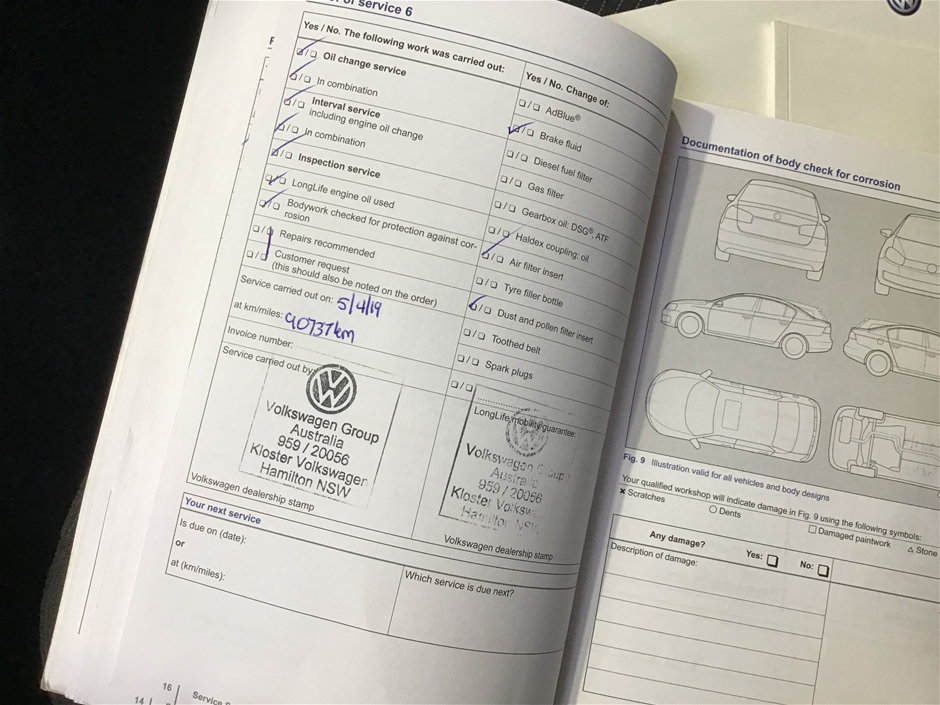 of service 6
Yes / No. The following work was carried out:
❑/❑ Oil change service
❑/❑ In combination
❑/❑ Interval service
including engine oil change
❑/❑ In combination
❑/❑ Inspection service
❑/❑ LongLife engine oil used
❑/❑ Bodywork checked for protection against cor-
rosion
❑/❑ Repairs recommended
❑/❑ Customer request
(this should also be noted on the order)
Service carried out on: 5/4/19
at km/miles: 90737km
Invoice number:
Service carried out by:
Volkswagen Group
Australia
959 / 20056
Kloster Volkswagen
Hamilton NSW
Volkswagen dealership stamp
Yes / No. Change of:
❑/❑ AdBlue®
❑/❑ Brake fluid
❑/❑ Diesel fuel filter
❑/❑ Gas filter
❑/❑ Gearbox oil: DSG®, ATF
❑/❑ Haldex coupling: oil
❑/❑ Air filter insert
❑/❑ Tyre filler bottle
❑/❑ Dust and pollen filter insert
❑/❑ Toothed belt
❑/❑ Spark plugs
❑/❑
LongLife mobility guarantee:
Volkswagen Group
Australia
959 / 20056
Kloster Volkswa
Hamilton NSW
Volkswagen dealership stamp
Your next service
Is due on (date):
or
at (km/miles):
Which service is due next?
16
14
Service
Documentation of body check for corrosion
Fig. 9 Illustration valid for all vehicles and body designs
Your qualified workshop will indicate damage in Fig. 9 using the following symbols:
✗ Scratches
○ Dents
□ Damaged paintwork
△ Stone
Any damage? Yes: ❑ No: ❑
Description of damage: